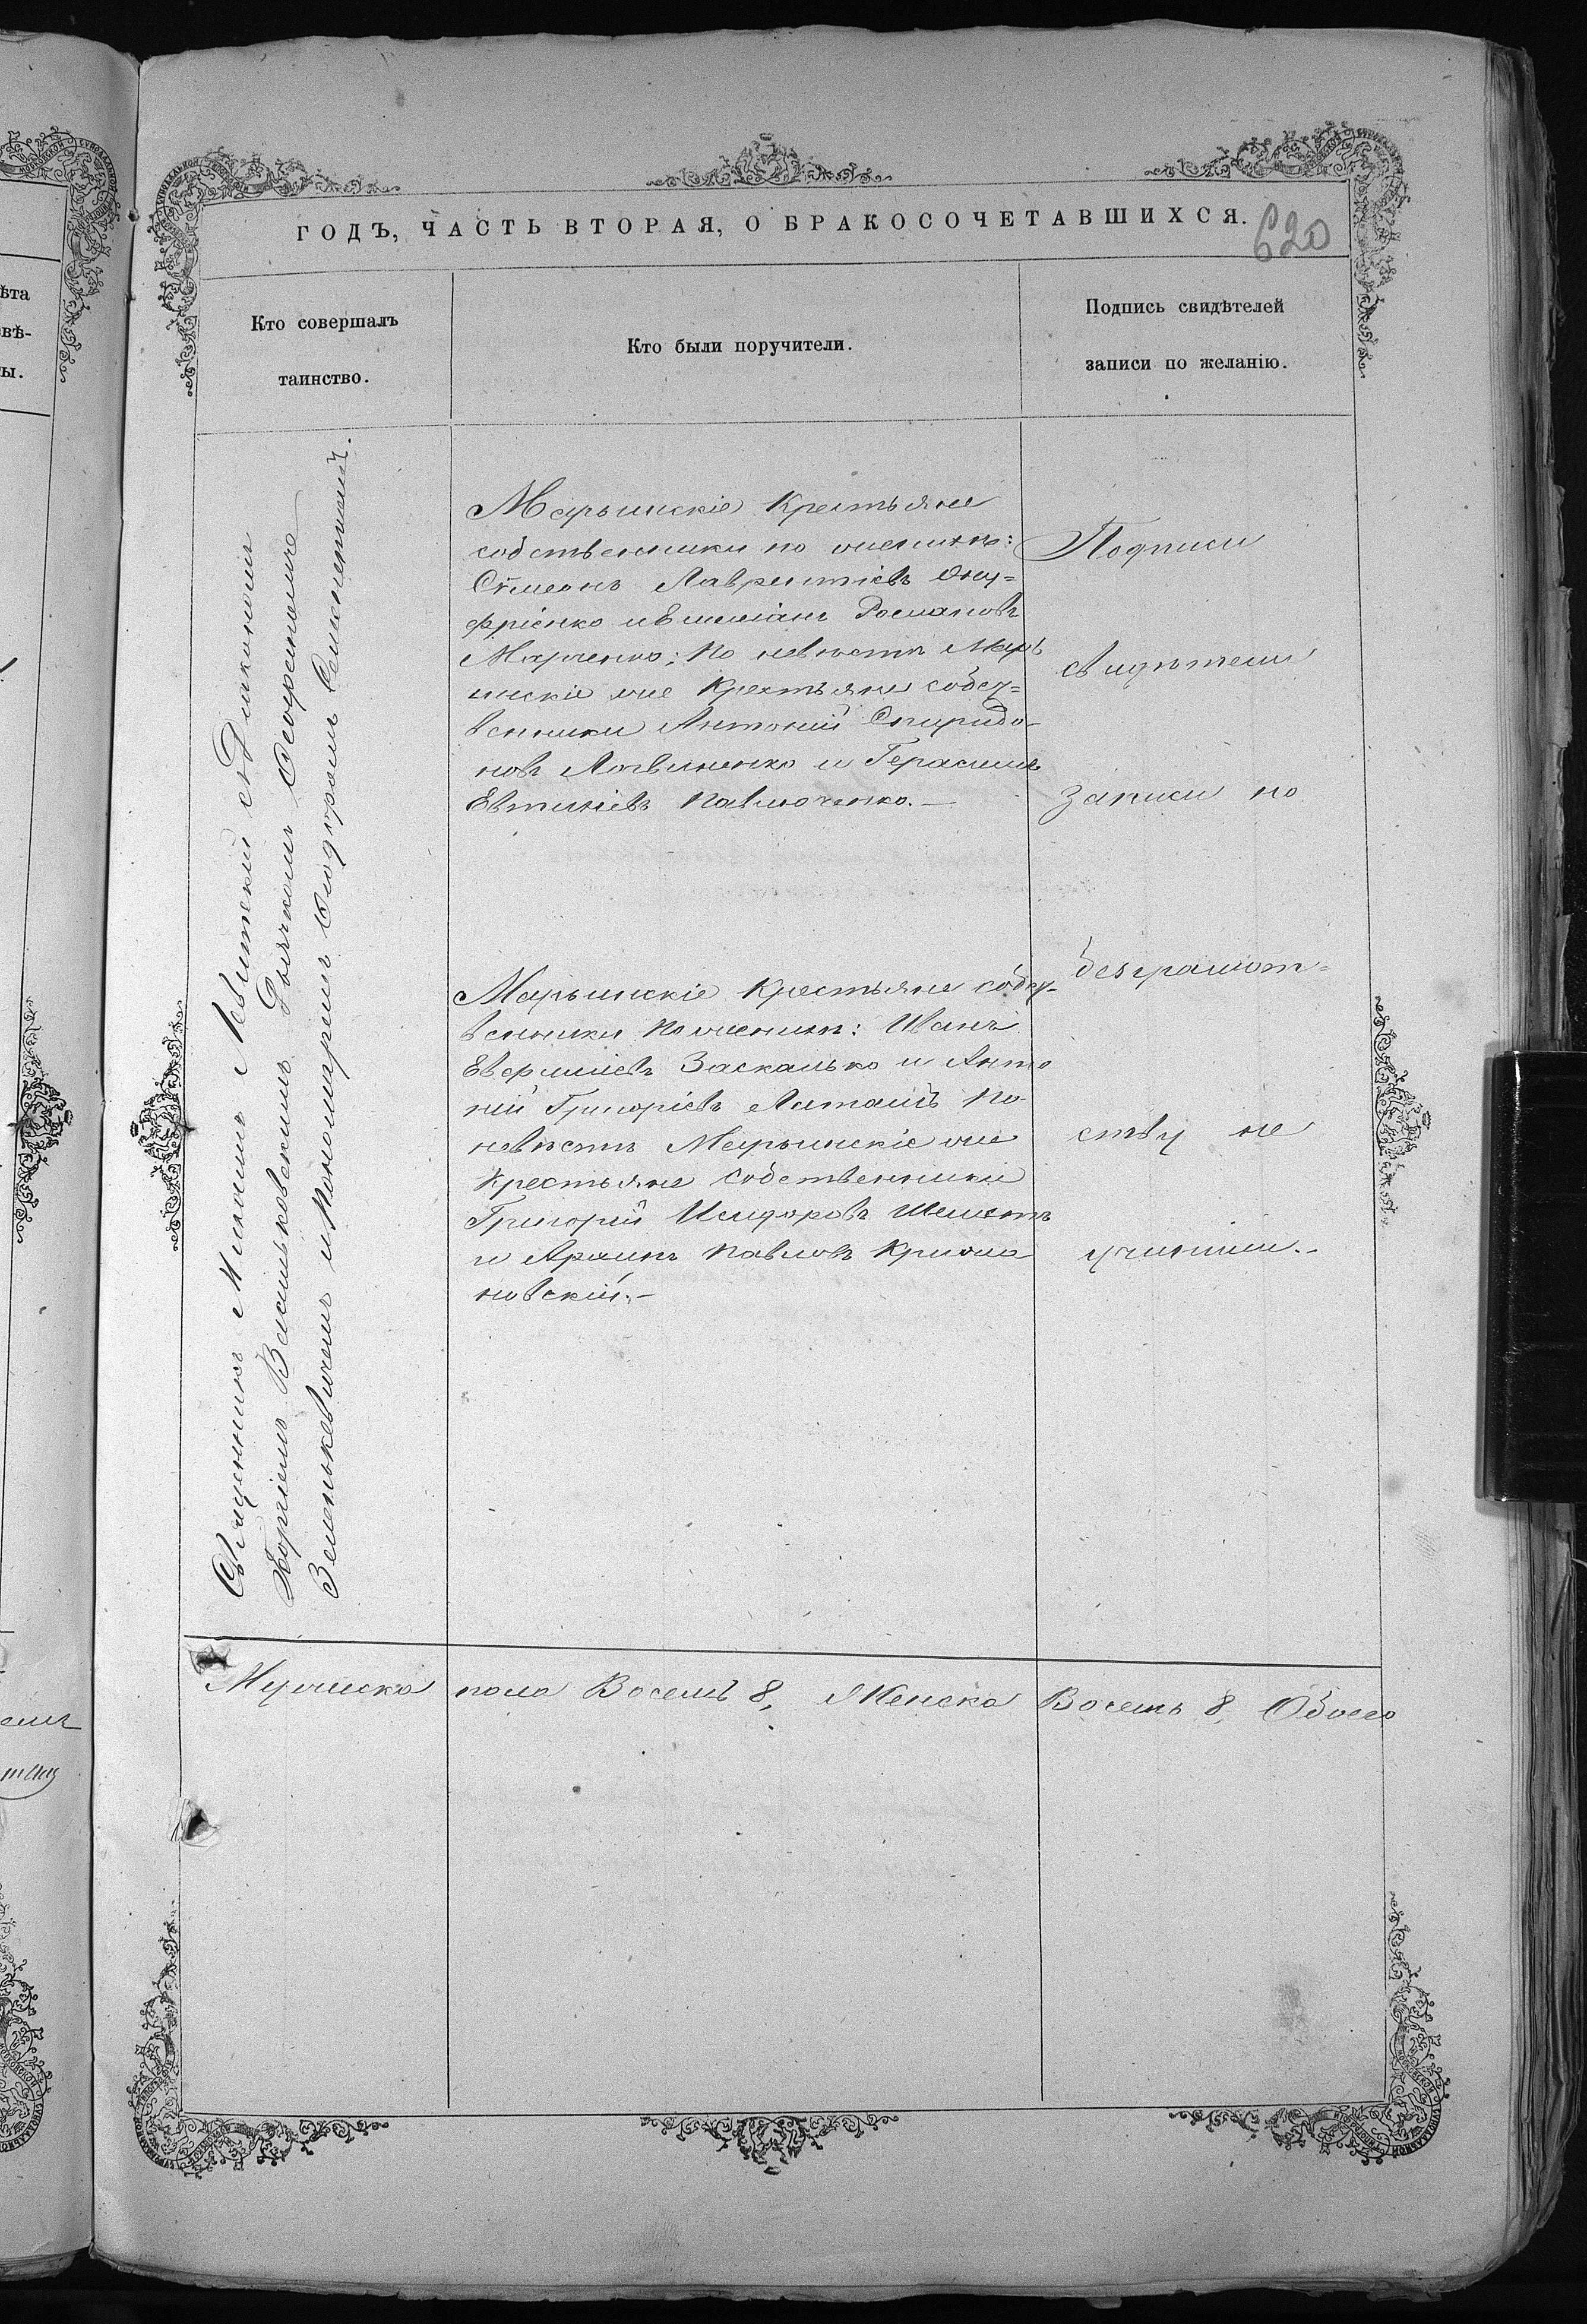 ГОДЪ, ЧАСТЬ ВТОРАЯ, О БРАКОСОЧЕТАВШИХСЯ.
620
Кто совершалъ
таинство.
Кто были поручители.
Подпись свидѣтелей
записи по желанію.
Священникъ Левитскій съ Діакономъ
Васильковскимъ Дьячкомъ
Зенькевичемъ и Пономаремъ Ѳеодоромъ
Марьинскіе Крестьяне
собственники по женихѣ:
Сѵмеонъ Лаврентіевъ Ону=
фріенко и Емиліанъ Романовъ
Марченко; По невѣстѣ Марь
инскіе же Крестьяне собст=
венники Антоній Спиридо-
новъ Логвиненко и Герасимъ
Евтихіевъ Павлюченко.—
Марьинскіе Крестьяне собст-
венники По женихѣ: Иванъ
Заскалько и Анто
ній Григоріевъ По-
невѣстѣ Марьинскіе же
Крестьяне собственники
Григорій Исидоровъ
и Павловъ
новскій.—
Подписи
свидѣтели
записи по
безграмот=
ству не
учинили.-
Мужеска пола Восемь 8, Женска Восемь 8, Обоего
ѣта
вѣ-
ы.